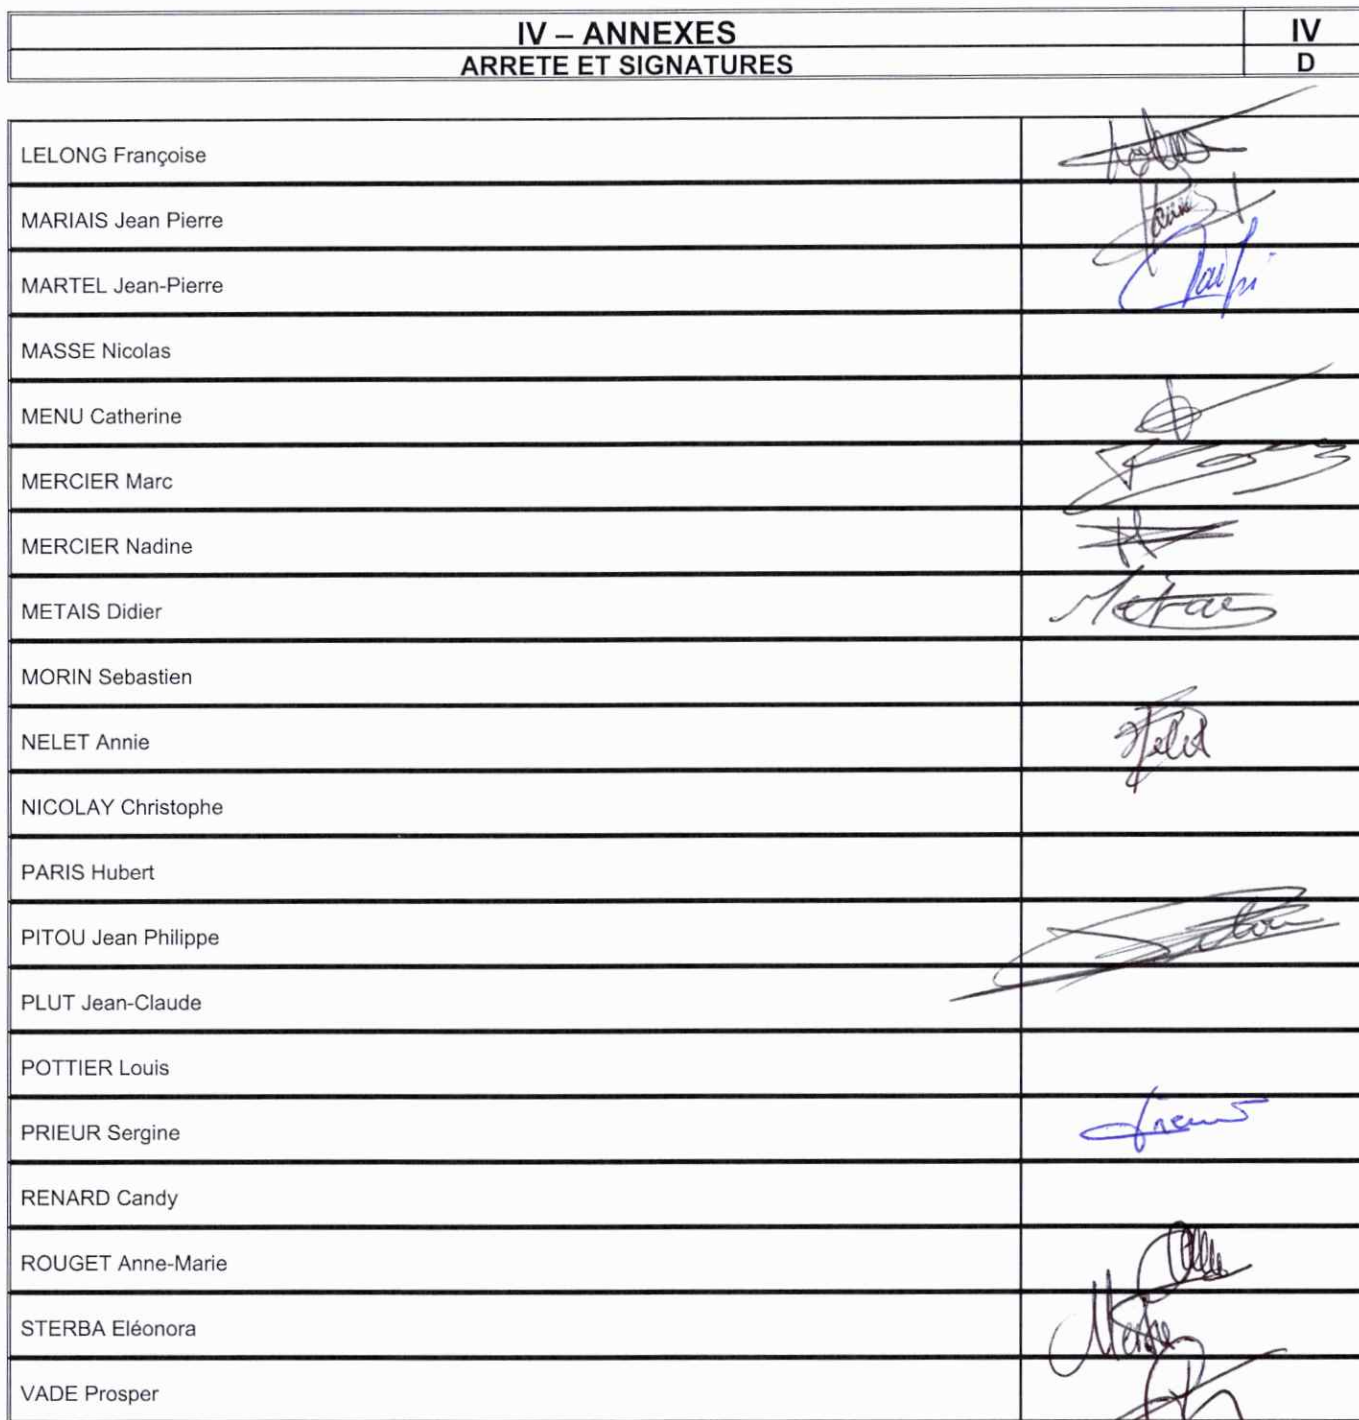 IV – ANNEXES
IV
ARRETE ET SIGNATURES
D
LELONG Françoise
MARIAIS Jean Pierre
MARTEL Jean-Pierre
MASSE Nicolas
MENU Catherine
MERCIER Marc
MERCIER Nadine
METAIS Didier
MORIN Sebastien
NELET Annie
NICOLAY Christophe
PARIS Hubert
PITOU Jean Philippe
PLUT Jean-Claude
POTTIER Louis
PRIEUR Sergine
RENARD Candy
ROUGET Anne-Marie
STERBA Eléonora
VADE Prosper